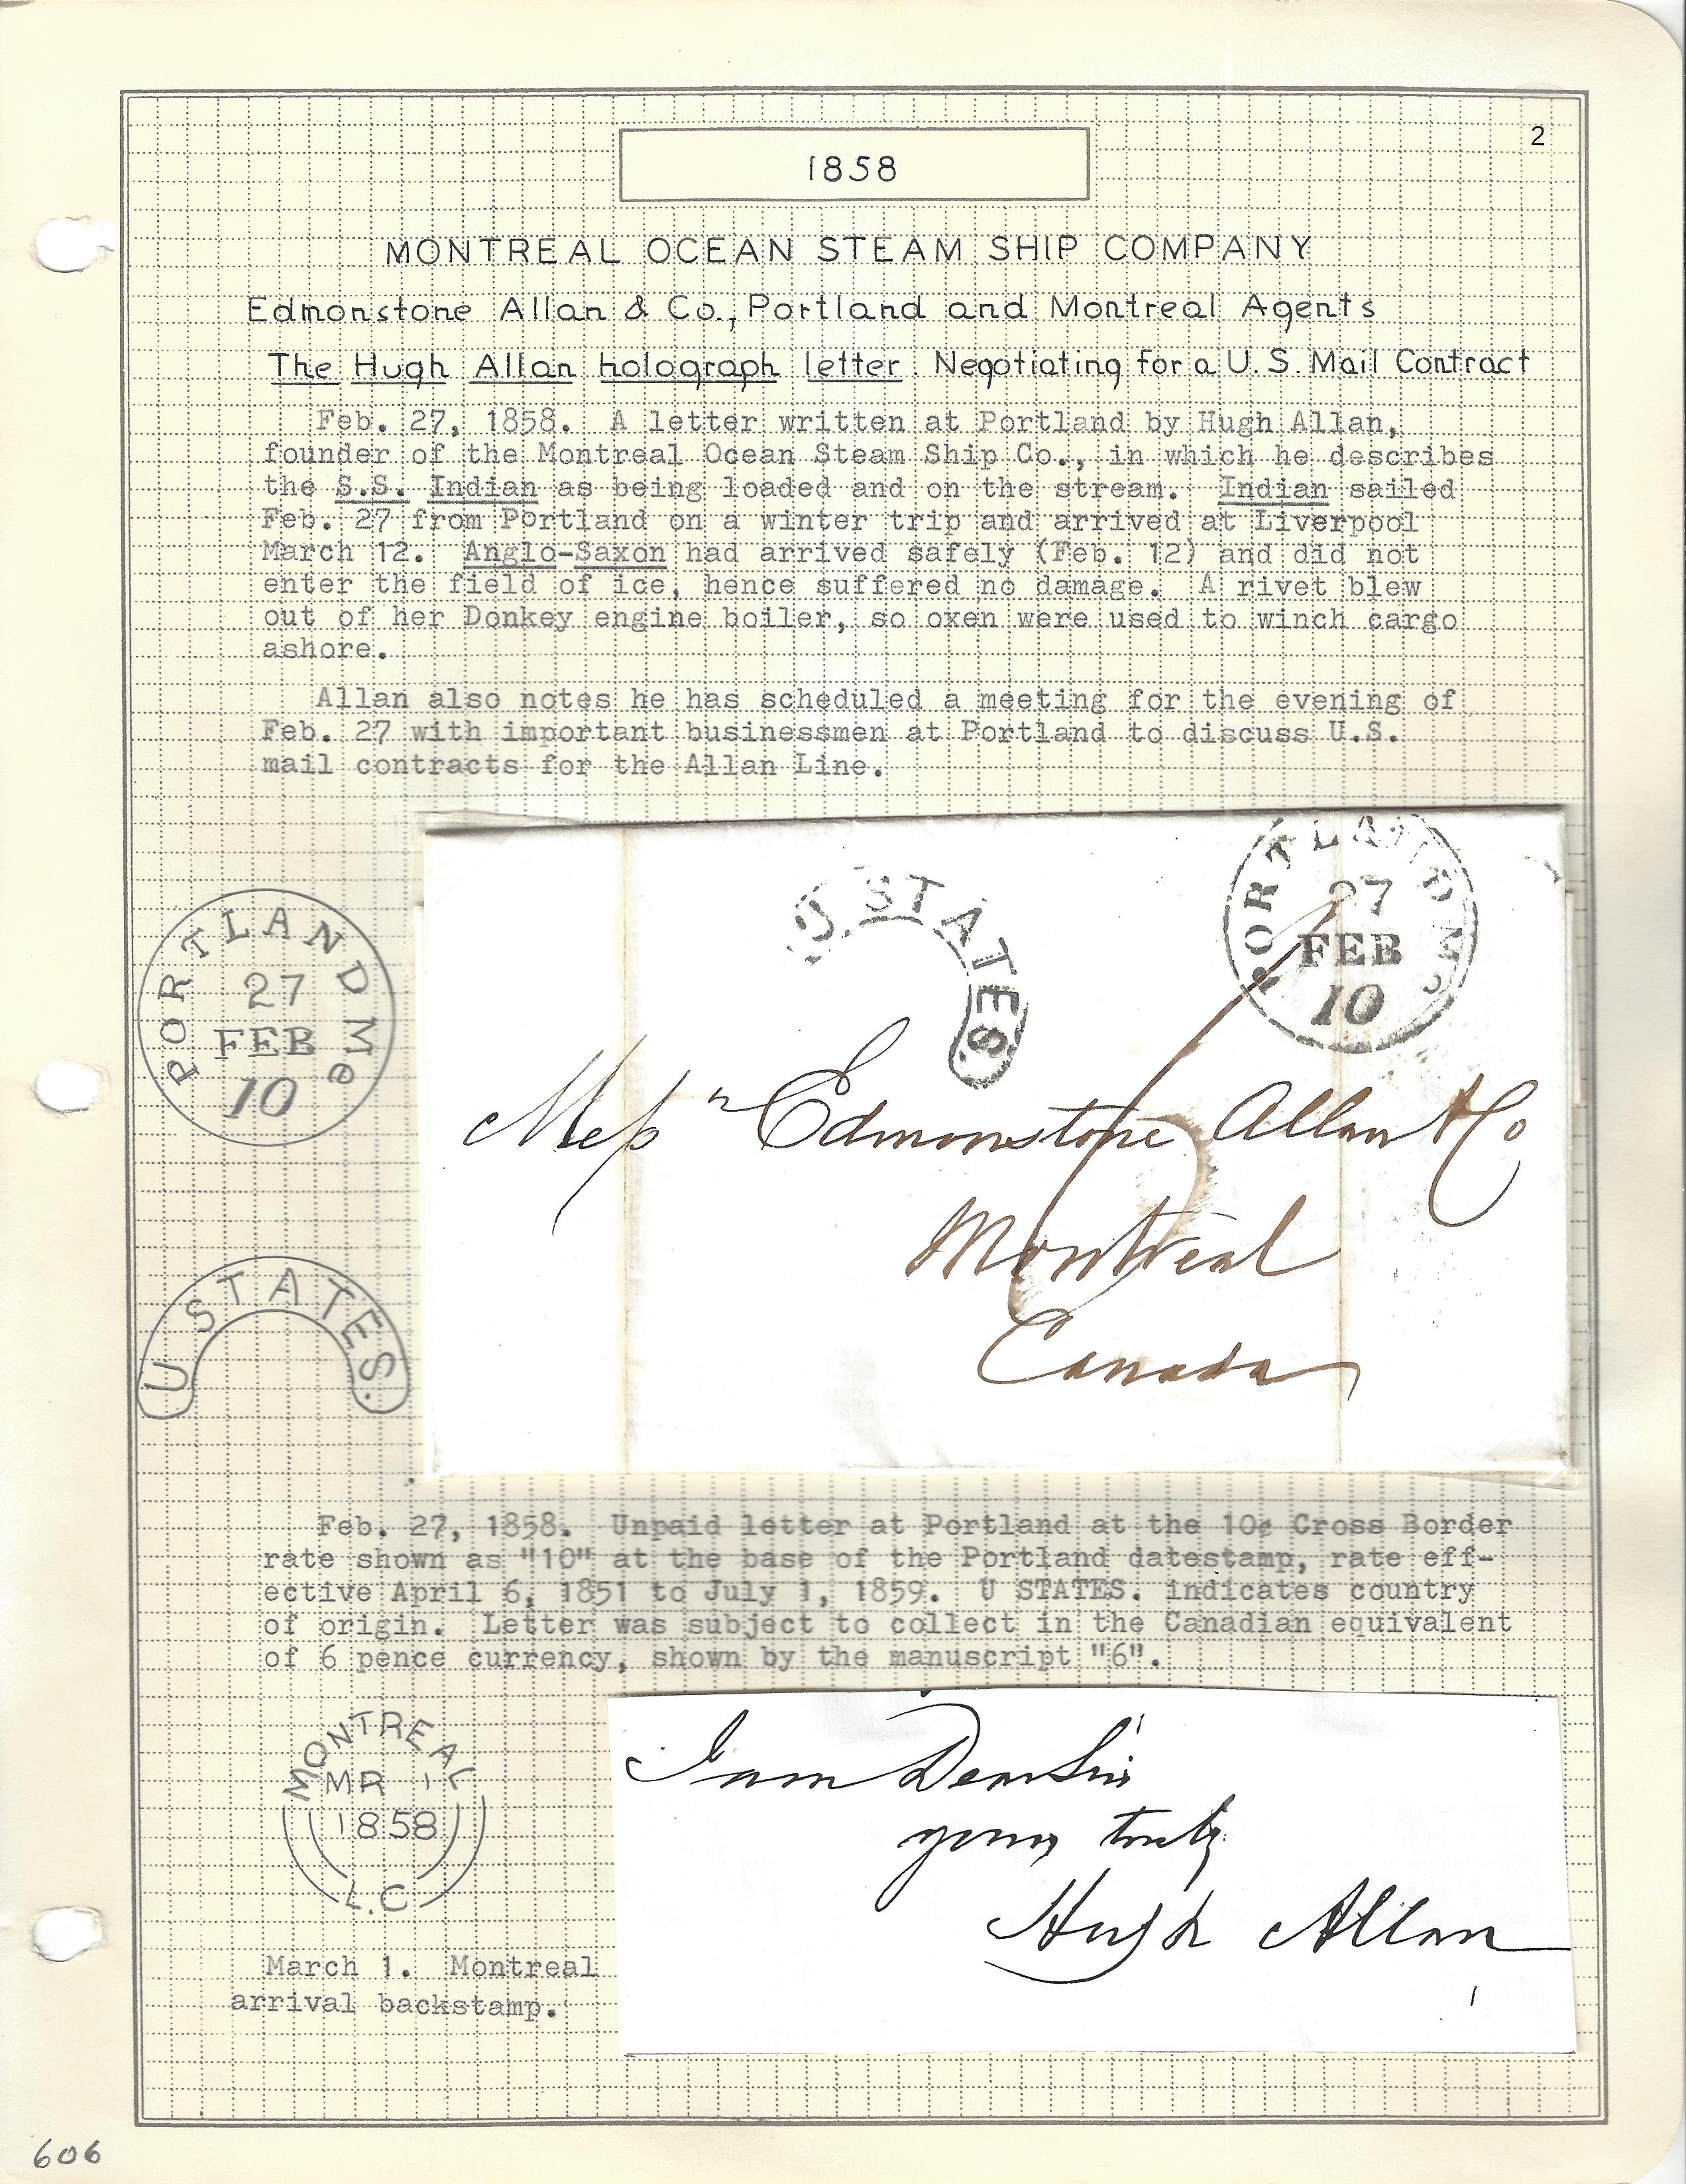 2
1858
MONTREAL OCEAN STEAM SHIP COMPANY
Edmonstone Allan & Co., Portland and Montreal Agents
The Hugh Allan holograph letter. Negotiating for a U.S. Mail Contract
Feb. 27, 1858. A letter written at Portland by Hugh Allan,
founder of the Montreal Ocean Steam Ship Co., in which he describes
the S.S. Indian as being loaded and on the stream. Indian sailed
Feb. 27 from Portland on a winter trip and arrived at Liverpool
March 12. Anglo-Saxon had arrived safely (Feb. 12) and did not
enter the field of ice, hence suffered no damage. A rivet blew
out of her Donkey engine boiler, so oxen were used to winch cargo
ashore.
Allan also notes he has scheduled a meeting for the evening of
Feb. 27 with important businessmen at Portland to discuss U.S.
mail contracts for the Allan Line.
PORTLAND Me
27
FEB
10
U STATES.
U. STATES.
PORTLAND Me
27
FEB
10
6
Messrs Edmonstone Allan & Co
Montreal
Canada
Feb. 27, 1858. Unpaid letter at Portland at the 10¢ Cross Border
rate shown as "10" at the base of the Portland datestamp, rate eff-
ective April 6, 1851 to July 1, 1859. U STATES. indicates country
of origin. Letter was subject to collect in the Canadian equivalent
of 6 pence currency, shown by the manuscript "6".
MONTREAL
MR 1
1858
L.C
March 1. Montreal
arrival backstamp.
I am Dear Sirs
yours truly
Hugh Allan
606